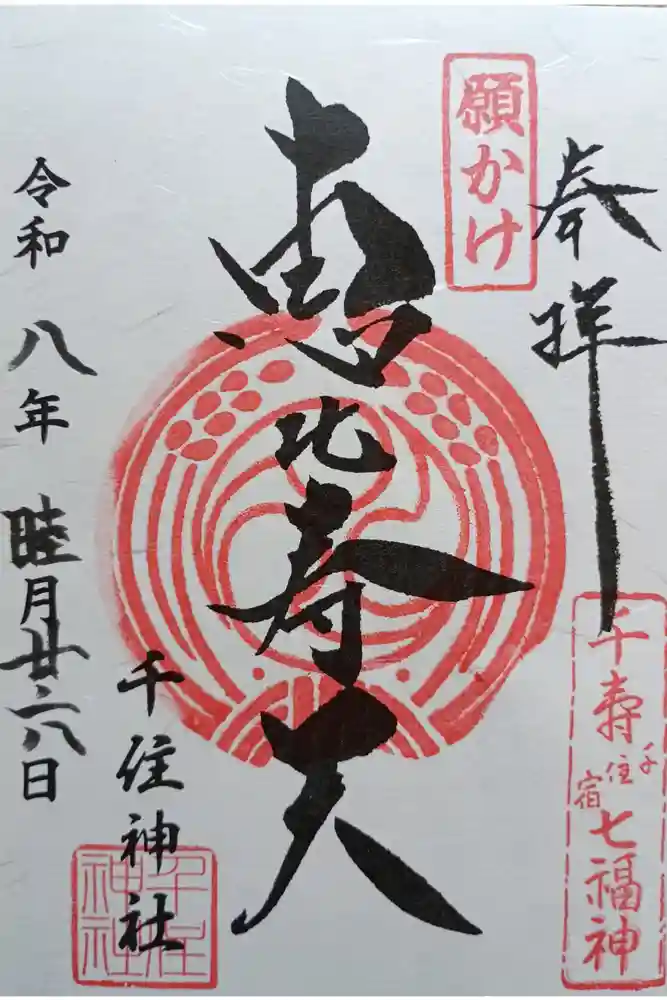 奉拝
願かけ
千寿
千住宿
七福神
恵比寿天
千住神社
千住神社
令和八年 睦月廿八日